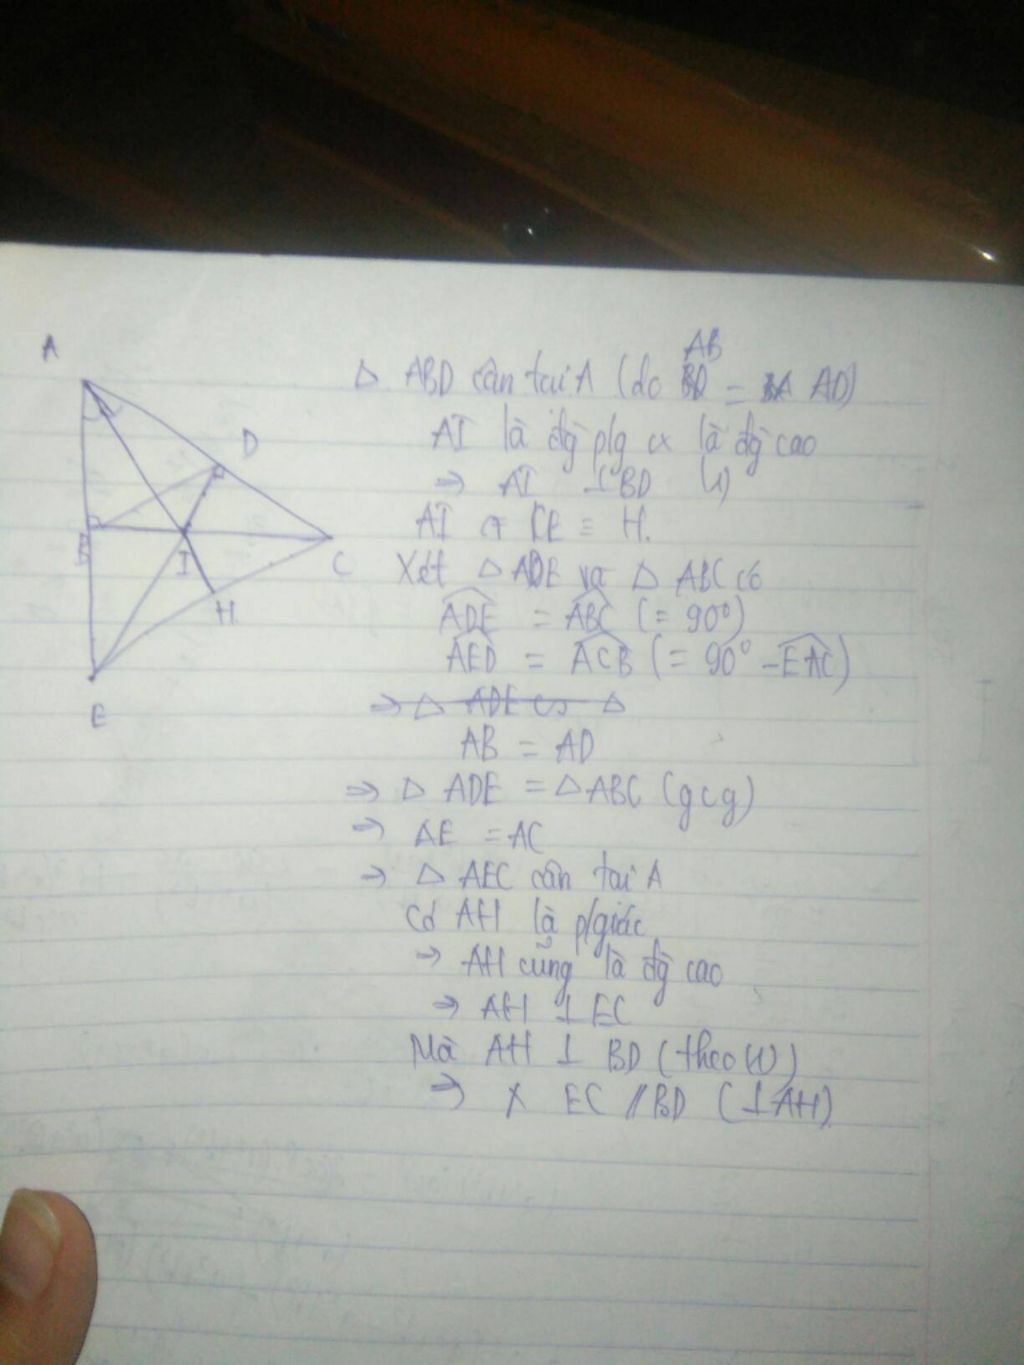 A
D
B
I
C
H
E
AB
Δ ABD cân tại A (do = AD)
AI là đg plg cx là đg cao
=> AI ⊥ BD (1)
AI ∩ CE ≡ H.
Xét Δ ADE và Δ ABC có
ADE = ABC (= 90°)
AED = ACB (= 90° - EAC)
=> Δ ADE ∽ Δ
AB = AD
=> Δ ADE = Δ ABC (gcg)
=> AE = AC
=> Δ AEC cân tại A
Có AH là p/giác
=> AH cũng là đg cao
=> AH ⊥ EC
Mà AH ⊥ BD (theo (1))
=> EC // BD (⊥ AH)